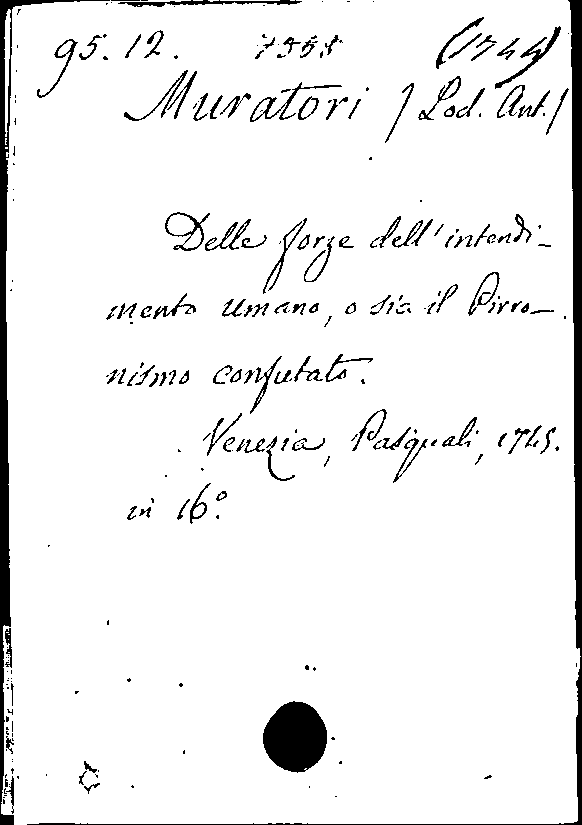 95.12. 7555 (1744)
Muratori / Lod. Ant. /
Delle forze dell'intendi-
mento umano, o sia il Pirro-
nismo confutato.
Venezia, Pasquali, 1745.
in 16º.